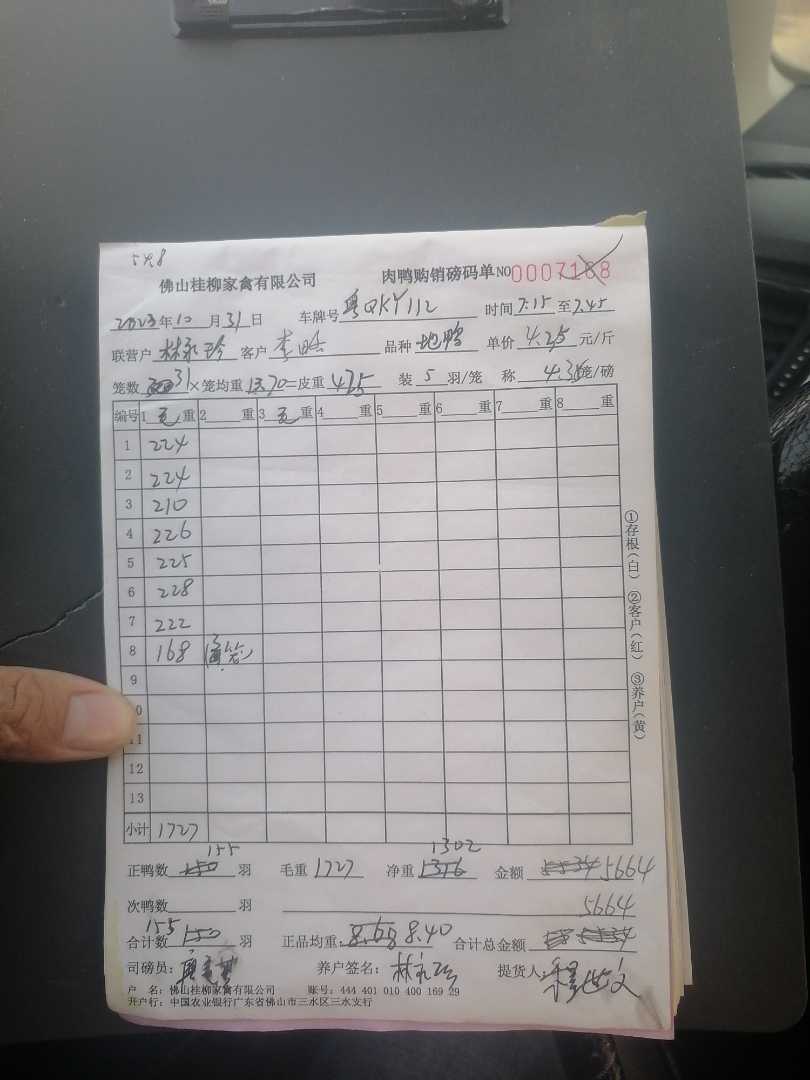 548
佛山桂柳家禽有限公司 肉鸭购销磅码单 NO 0007188
2023年10月31日 车牌号 粤QKY112 时间 7:15 至 7:45
联营户 林永珍 客户 李 品种 地鸭 单价 4.25 元/斤
笼数 31 × 笼均重 13.70 = 皮重 425 装 5 羽/笼 称 笼/磅
编号 1 毛 重 2 重 3 毛 重 4 重 5 重 6 重 7 重 8 重
1 224
2 224
3 210
4 226
5 225
6 228
7 222
8 168
9
10
11
12
13
小计 1727
155 1302
正鸭数 150 羽 毛重 1727 净重 1376 金额 5534 5664
次鸭数 羽 5664
155
合计数 150 羽 正品均重: 8.68 8.40 合计总金额 5534
司磅员: 养户签名: 林永珍 提货人:
户 名: 佛山桂柳家禽有限公司 账号: 444 401 010 400 169 29
开户行: 中国农业银行广东省佛山市三水区三水支行
①存根(白) ②客户(红) ③养户(黄)